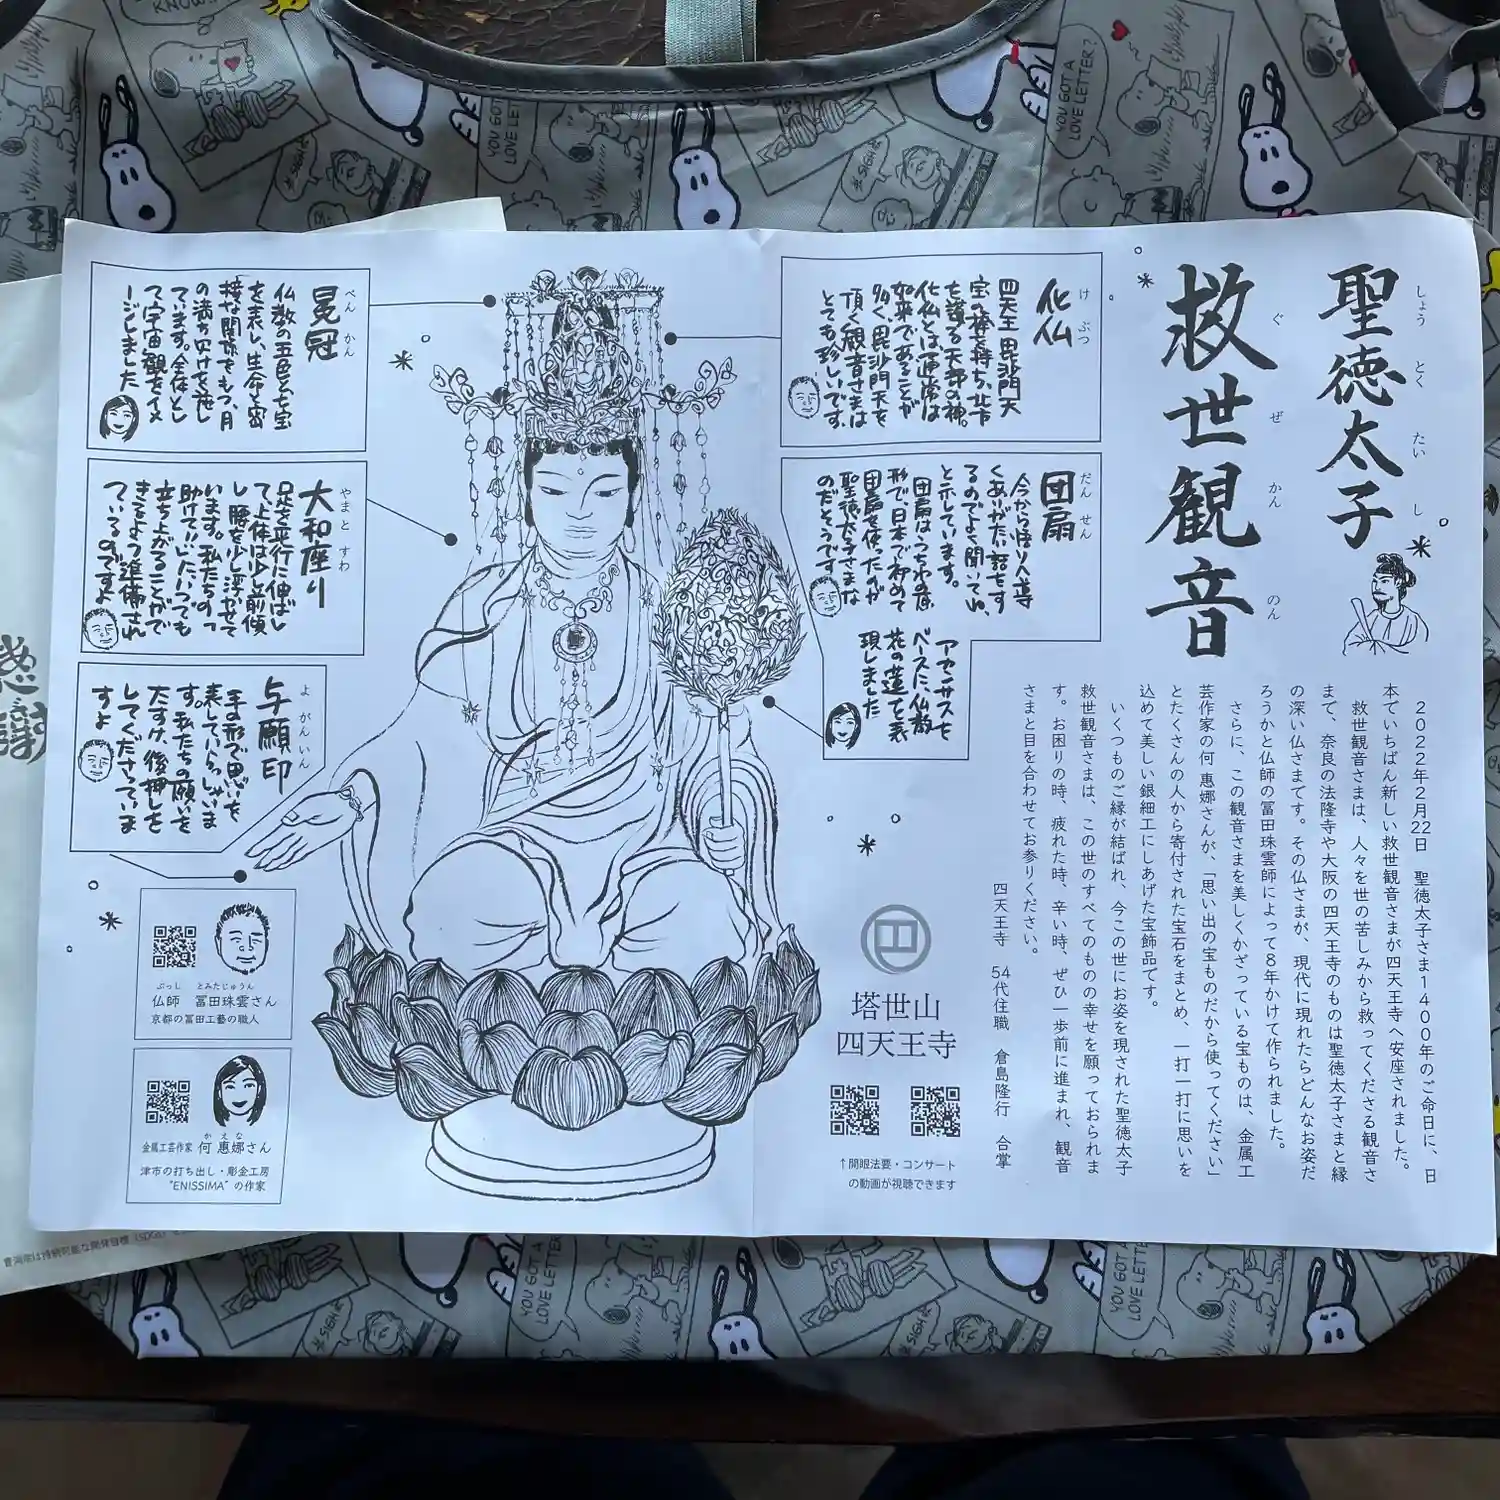 聖徳太子
しょうとくたいし
救世観音
ぐぜかんのん
2022年2月22日 聖徳太子さま1400年のご命日に、日
本でいちばん新しい救世観音さまが四天王寺へ安座されました。
救世観音さまは、人々を世の苦しみから救ってくださる観音さ
まで、奈良の法隆寺や大阪の四天王寺のものは聖徳太子さまと縁
の深い仏さまです。その仏さまが、現代に現れたらどんなお姿だ
ろうかと仏師の冨田珠雲師によって8年かけて作られました。
さらに、この観音さまを美しくかざっている宝ものは、金属工
芸作家の何 惠娜さんが、「思い出の宝ものだから使ってください」
とたくさんの人から寄付された宝石をまとめ、一打一打に思いを
込めて美しい銀細工にしあげた宝飾品です。
いくつものご縁が結ばれ、今この世にお姿を現された聖徳太子
救世観音さまは、この世のすべてのものの幸せを願っておられま
す。お困りの時、疲れた時、辛い時、ぜひ一歩前に進まれ、観音
さまと目を合わせてお参りください。
四天王寺 54代住職 倉島隆行 合掌
化仏
けぶつ
四天王 毘沙門天
宝棒を持ち、北方
を護る天部の神。
化仏とは通常は
如来であることが
多く、毘沙門天を
頂く観音さまは
とても珍しいです。
団扇
だんせん
今からぼり人導
くありがたい話をす
るのでよく聞いてね、
と示しています。
団扇はうちわの原
形で、日本で初めて
団扇を使ったのが
聖徳太子さまな
のだそうです
アカンサスを
ベースに、仏教
花の蓮で表
現しました
冕冠
べんかん
仏教の五色と七宝
を表し、生命と密
接な関係をもつ、月
の満ち欠けを施し
ています。全体とし
て宇宙観をイメ
ージしました
大和座り
やまとすわ
足を平行に伸ばし
て、上体は少し前傾
し、腰を少し浮かせて
います。私たちの「っ
助けて!!」にいつでも
立ち上がることがで
きるよう準備され
ているのですよ
与願印
よがんいん
手の形で思いを
表していらっしゃいま
す。私たちの願いを
たすけ、後押しを
してくださっていま
すよ
ぶっし とみたじゅうん
仏師 冨田珠雲さん
京都の冨田工藝の職人
かえな
金属工芸作家 何 惠娜さん
津市の打ち出し・彫金工房
"ENISSIMA" の作家
塔世山
四天王寺
↑開眼法要・コンサート
の動画が視聴できます
YOU GOT A LOVE LETTER?
*SIGH*
KNOW!